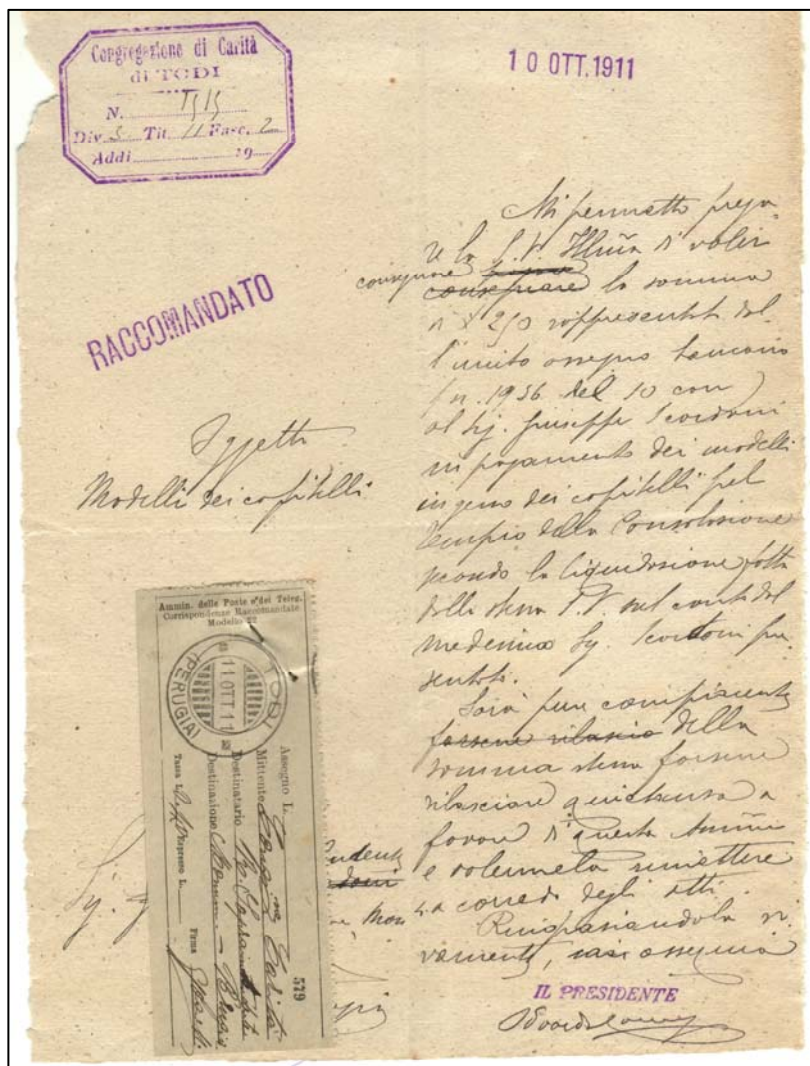 Congregazione di Carità
di TODI
N. 1515
Div. 5 Tit. 11 Fasc. 2
Addì 19
10 OTT.1911
RACCOMANDATO
Oggetto
Modelli dei capitelli
Mi permetto prega-
re la S.V. Illma di voler
consegnare
consegnare la somma
di £ 250 rappresentata dal-
l'unito assegno bancario
(n. 1956 del 10 corr)
al Sig. Giuseppe Scardoni
in pagamento dei modelli
in gesso dei capitelli pel
Tempio della Consolazione
secondo la liquidazione fatta
dalla stessa S.V. sul conto dal
medesimo Sig. Scardoni pre-
sentato.
Sarà pure compiacente
farsene rilascio della
somma stessa farsene
rilasciare quietanza a
favore di questa Ammne
e volermela rimettere
a corredo degli atti.
Ringraziandola vi-
vamente, con ossequio
IL PRESIDENTE
Ammin. delle Poste e dei Teleg.
Corrispondenze Raccomandate
Modello 22
TODI
(PERUGIA)
11 OTT 11
579
Assegno L.
Mittente Congne Carità
Destinatario R. Soprintendte
Destinazione Monum. - Perugia
Tassa L. Espresso L. Firma
Sig.